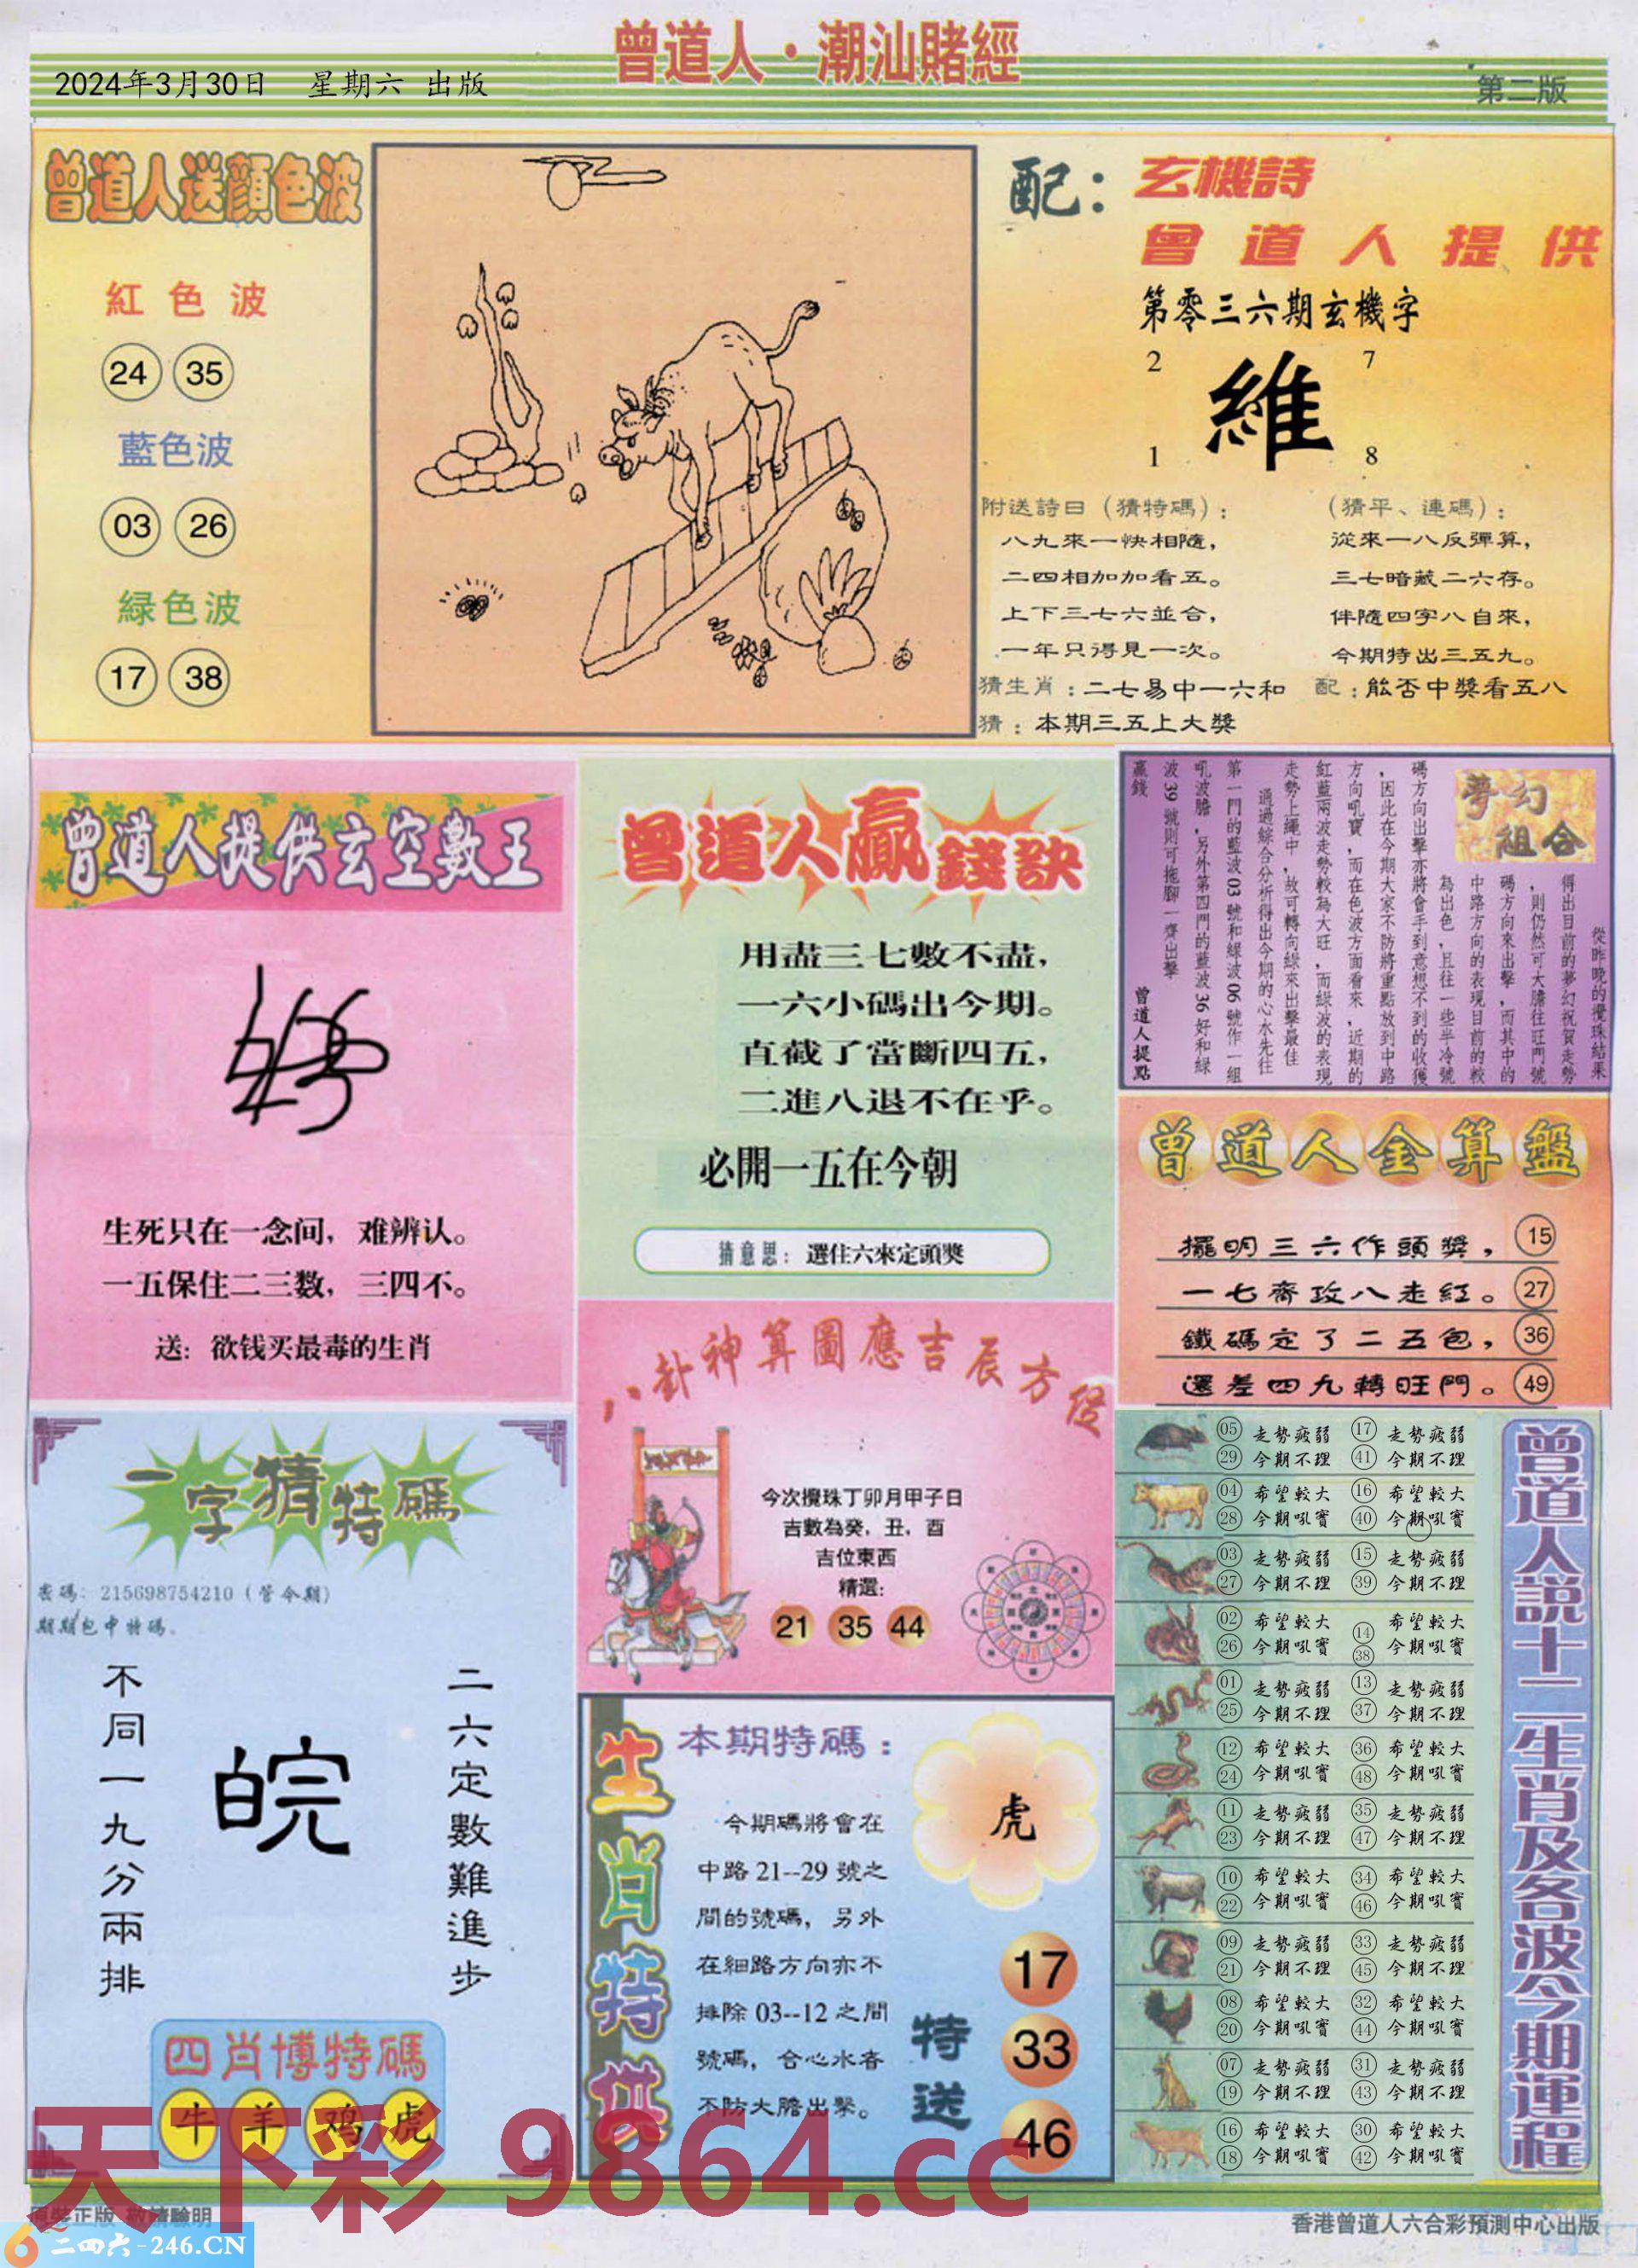 曾道人·潮汕賭經
2024年3月30日 星期六 出版
第二版
曾道人送顏色波
紅色波
24 35
藍色波
03 26
緑色波
17 38
配：玄機詩
曾道人提供
第零三六期玄機字
2 7
維
1 8
附送詩曰（猜特碼）：
八九來一快相隨，
二四相加加看五。
上下三七六並合，
一年只得見一次。
（猜平、連碼）：
從來一八反彈算，
三七暗藏二六存。
伴隨四字八自來，
今期特出三五九。
猜生肖：二七易中一六和 配：能否中獎看五八
猜：本期三五上大獎
曾道人提供玄空數王
生死只在一念间，难辨认。
一五保住二三数，三四不。
送：欲钱买最毒的生肖
曾道人贏錢訣
用盡三七數不盡，
一六小碼出今期。
直截了當斷四五，
二進八退不在乎。
必開一五在今朝
猜意思：選住六來定頭獎
夢幻組合
從昨晚的攪珠結果
得出目前的夢幻祝賀走勢
，則仍然可大膽往旺門號
碼方向來出擊，而其中的
中路方向的表現目前的較
為出色，且往一些半冷號
碼方向出擊亦將會手到意想不到的收獲
，因此在今期大家不防將重點放到中路
方向吼寶，而在色波方面看來，近期的
紅藍兩波走勢較為大旺，而綠波的表現
走勢上繩中，故可轉向綠來出擊最佳
通過綜合分析得出今期的心水先往
第一門的藍波03號和綠波06號作一組
吼波膽，另外第四門的藍波36好和綠
波39號則可拖腳一齊出擊
贏錢
曾道人提點
曾道人金算盤
擺明三六作頭獎， 15
一七齊攻八走紅。 27
鐵碼定了二五包， 36
還差四九轉旺門。 49
八卦神算圖應吉辰方位
今次攪珠丁卯月甲子日
吉數為癸，丑，酉
吉位東西
精選：
21 35 44
一字猜特碼
密碼：215698754210（管今期）
期期包中特碼。
不同一九分兩排
皖
二六定數難進步
四肖博特碼
牛 羊 鸡 虎
生肖特供
本期特碼：
今期碼將會在
中路21--29號之
間的號碼，另外
在細路方向亦不
排除03--12之間
號碼，合心水者
不防大膽出擊。
虎
特送
17
33
46
曾道人說十二生肖及各波今期運程
05 走勢疲弱 17 走勢疲弱
29 今期不理 41 今期不理
04 希望較大 16 希望較大
28 今期吼寶 40 今期吼寶
03 走勢疲弱 15 走勢疲弱
27 今期不理 39 今期不理
02 希望較大 14 希望較大
26 今期吼寶 38 今期吼寶
01 走勢疲弱 13 走勢疲弱
25 今期不理 37 今期不理
12 希望較大 36 希望較大
24 今期吼寶 48 今期吼寶
11 走勢疲弱 35 走勢疲弱
23 今期不理 47 今期不理
10 希望較大 34 希望較大
22 今期吼寶 46 今期吼寶
09 走勢疲弱 33 走勢疲弱
21 今期不理 45 今期不理
08 希望較大 32 希望較大
20 今期吼寶 44 今期吼寶
07 走勢疲弱 31 走勢疲弱
19 今期不理 43 今期不理
16 希望較大 30 希望較大
18 今期吼寶 42 今期吼寶
天下彩 9864.cc
原裝正版 敬請驗明
二四六-246.CN
香港曾道人六合彩預測中心出版